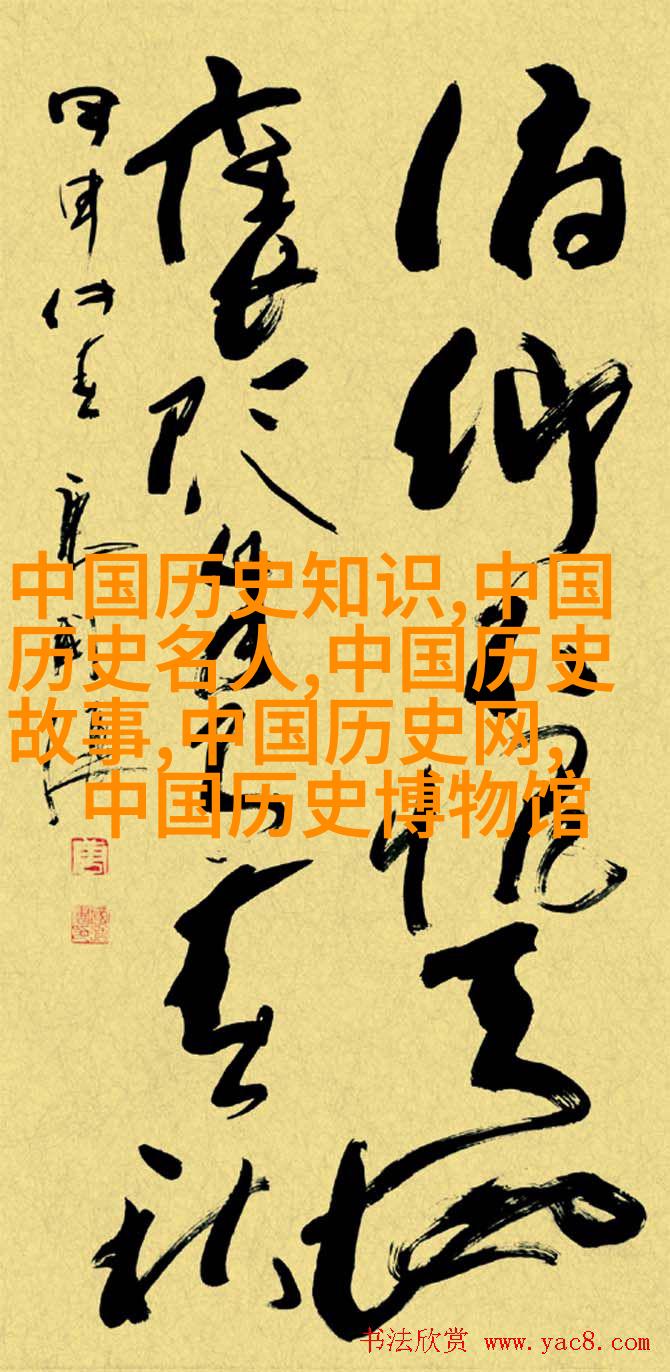 俯仰愧天地
褒贬春秋
仲春
中国历史知识,中国
历史名人,中国历史
故事,中国历史网,
中国历史博物馆
书法欣赏 www.yac8.com